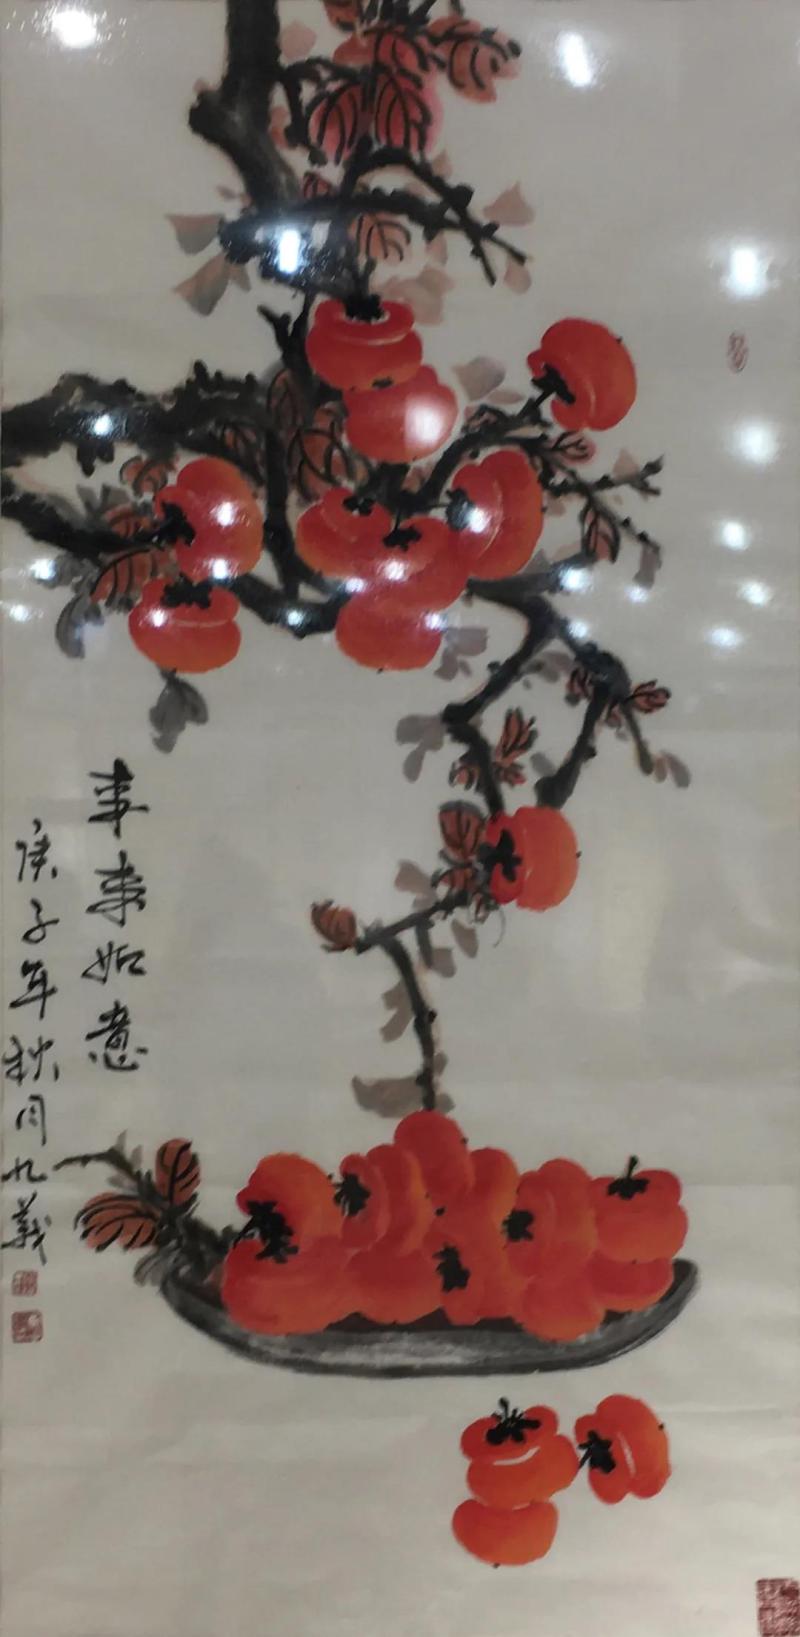 事事如意
庚子年秋月九義